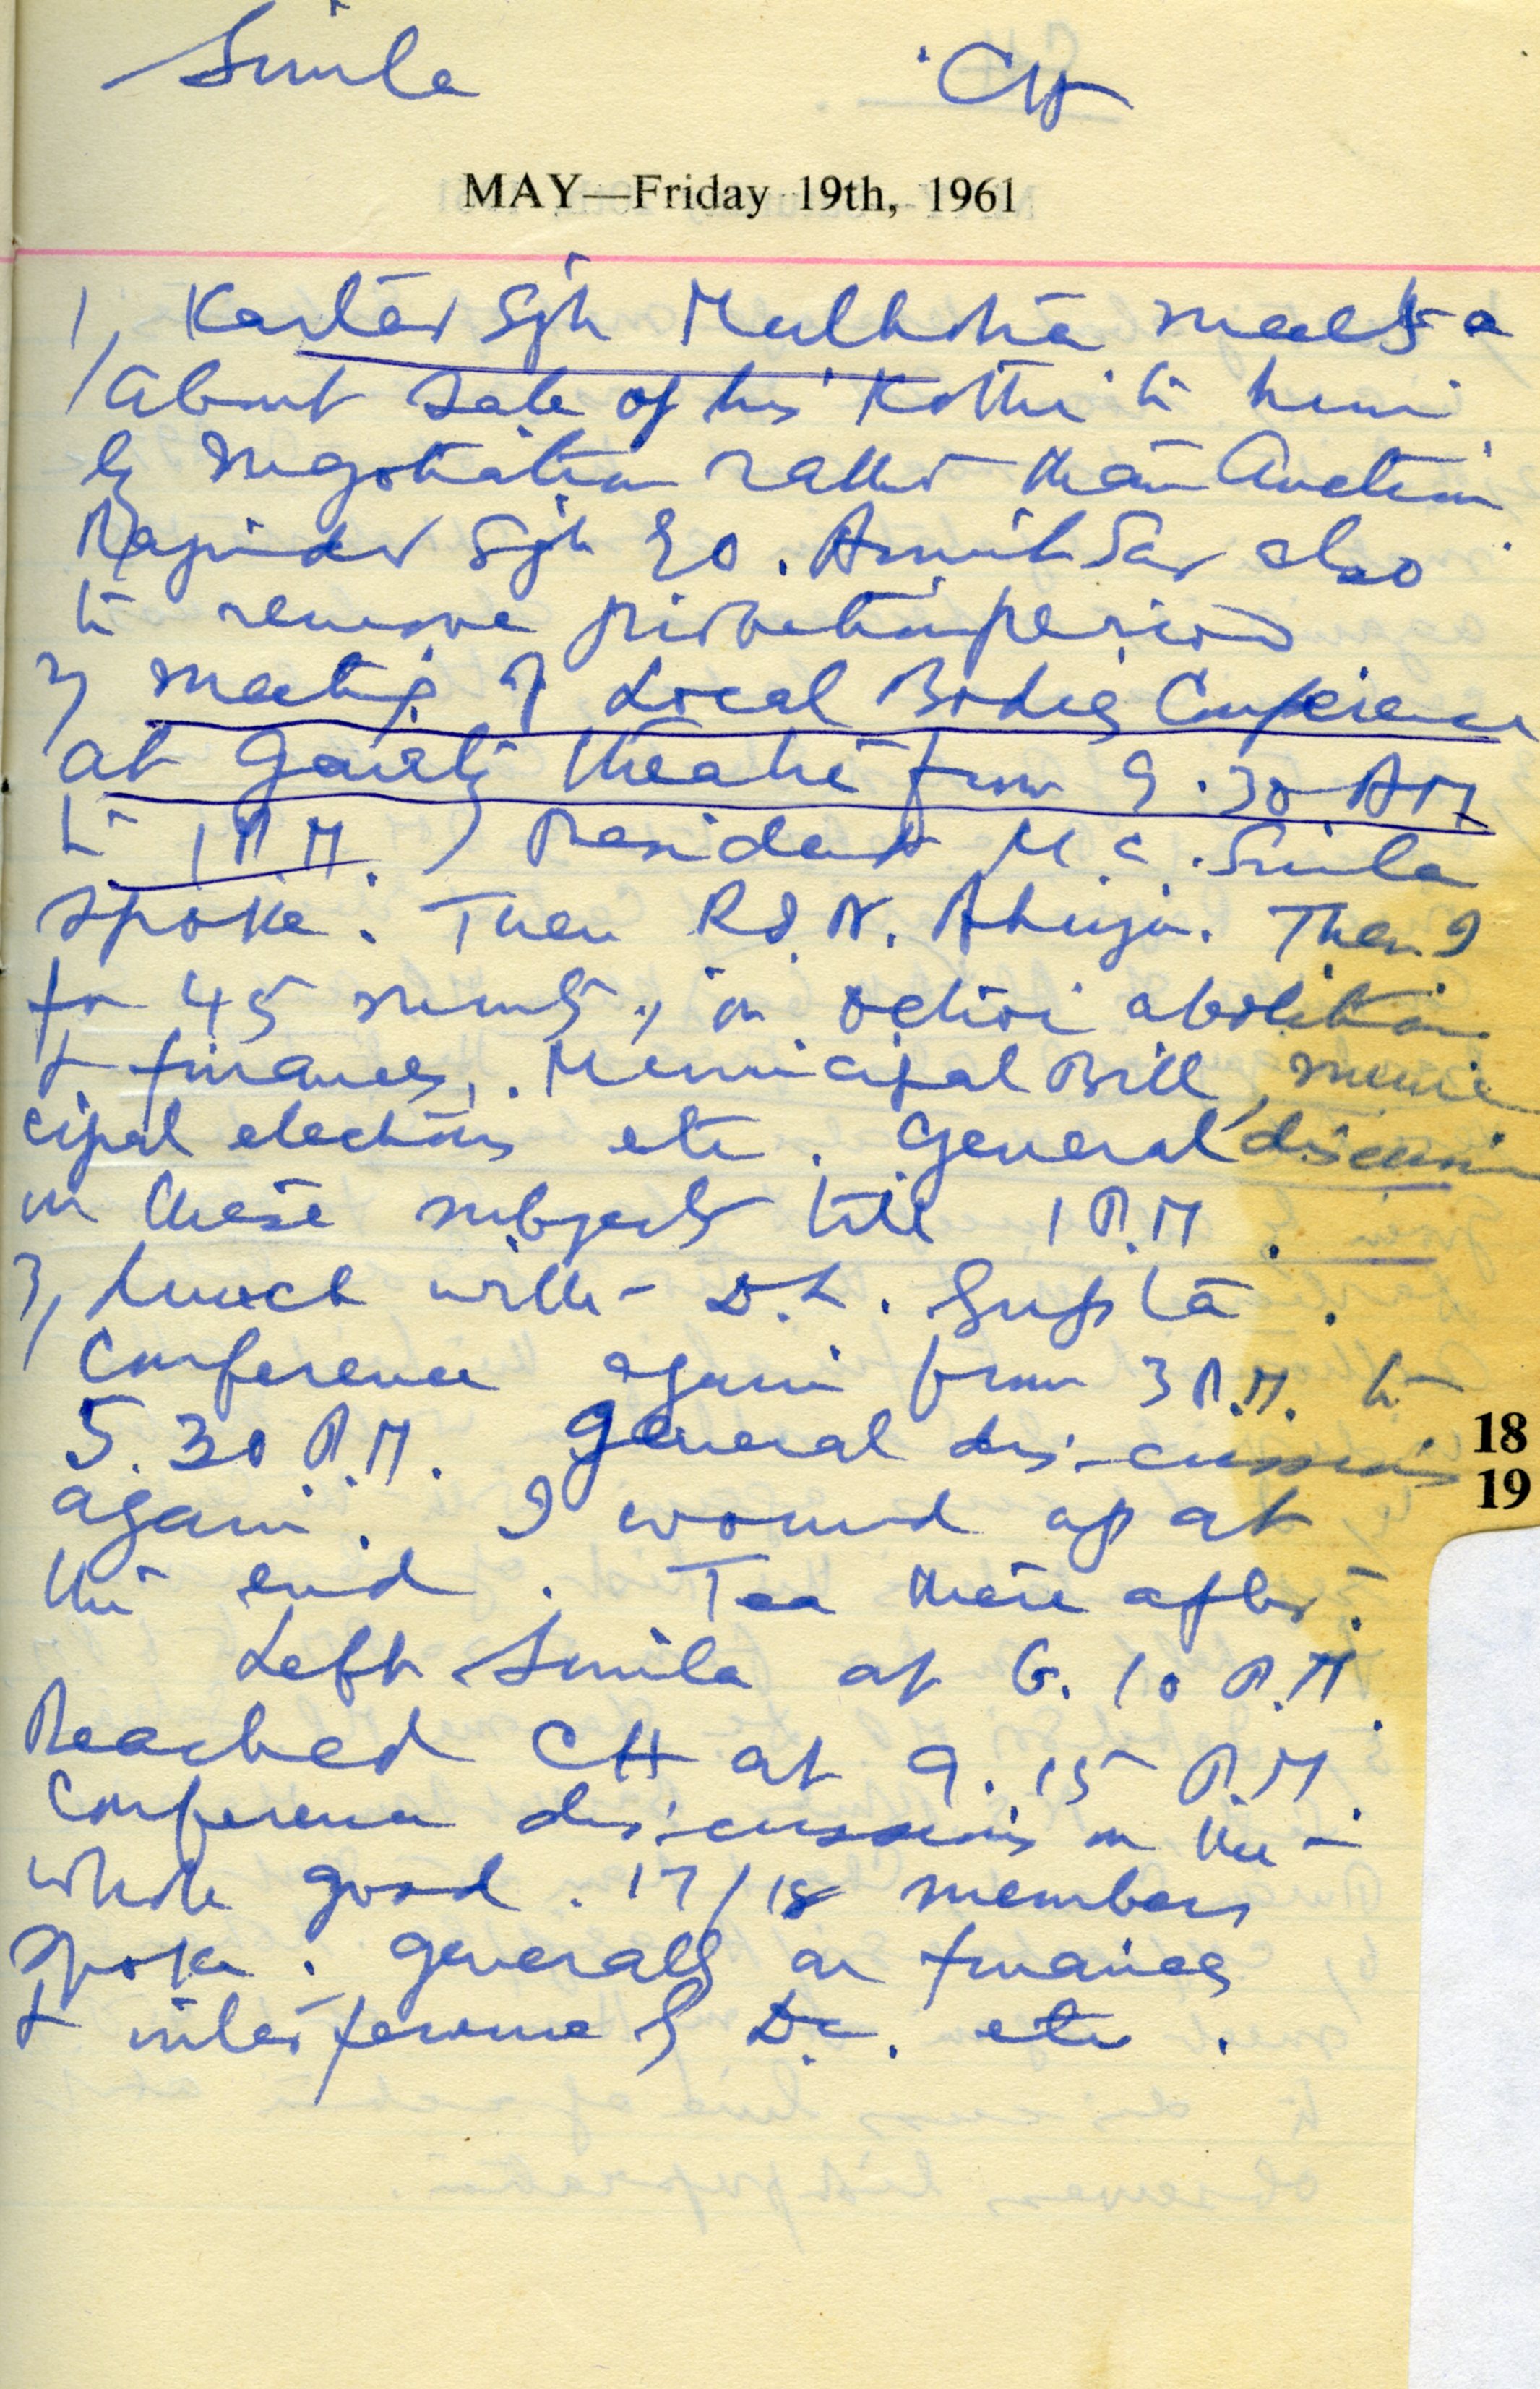 Simla CH
MAY—Friday 19th, 1961
1, Kartar Sgh Malhotra meets
about sale of his Kothi to him
by negotiation rather than Auction
Rajinder Sgh EO. Amritsar also
to remove probation period
2, Meeting of Local Bodies Conference
at Gaiety Theatre from 9.30 AM
to 1 P.M. President M.C. Simla
spoke. Then R.S.N. Ahuja. Then I
for 45 minuts, on octroi abolition
& finances, Municipal Bill, muni
cipal elections etc. General discussion
on these subjects till 1 P.M.
3, Lunch with D.L. Gupta.
Conference again from 3 P.M. to
5.30 P.M. General discussions
again. I wound up at
the end. Tea there after.
Left Simla at 6.10 P.M.
Reached CH at 9.15 P.M.
Conference discussions on the
whole good. 17/18 members
spoke. Generally on finances
& interference of D.C. etc.
18
19